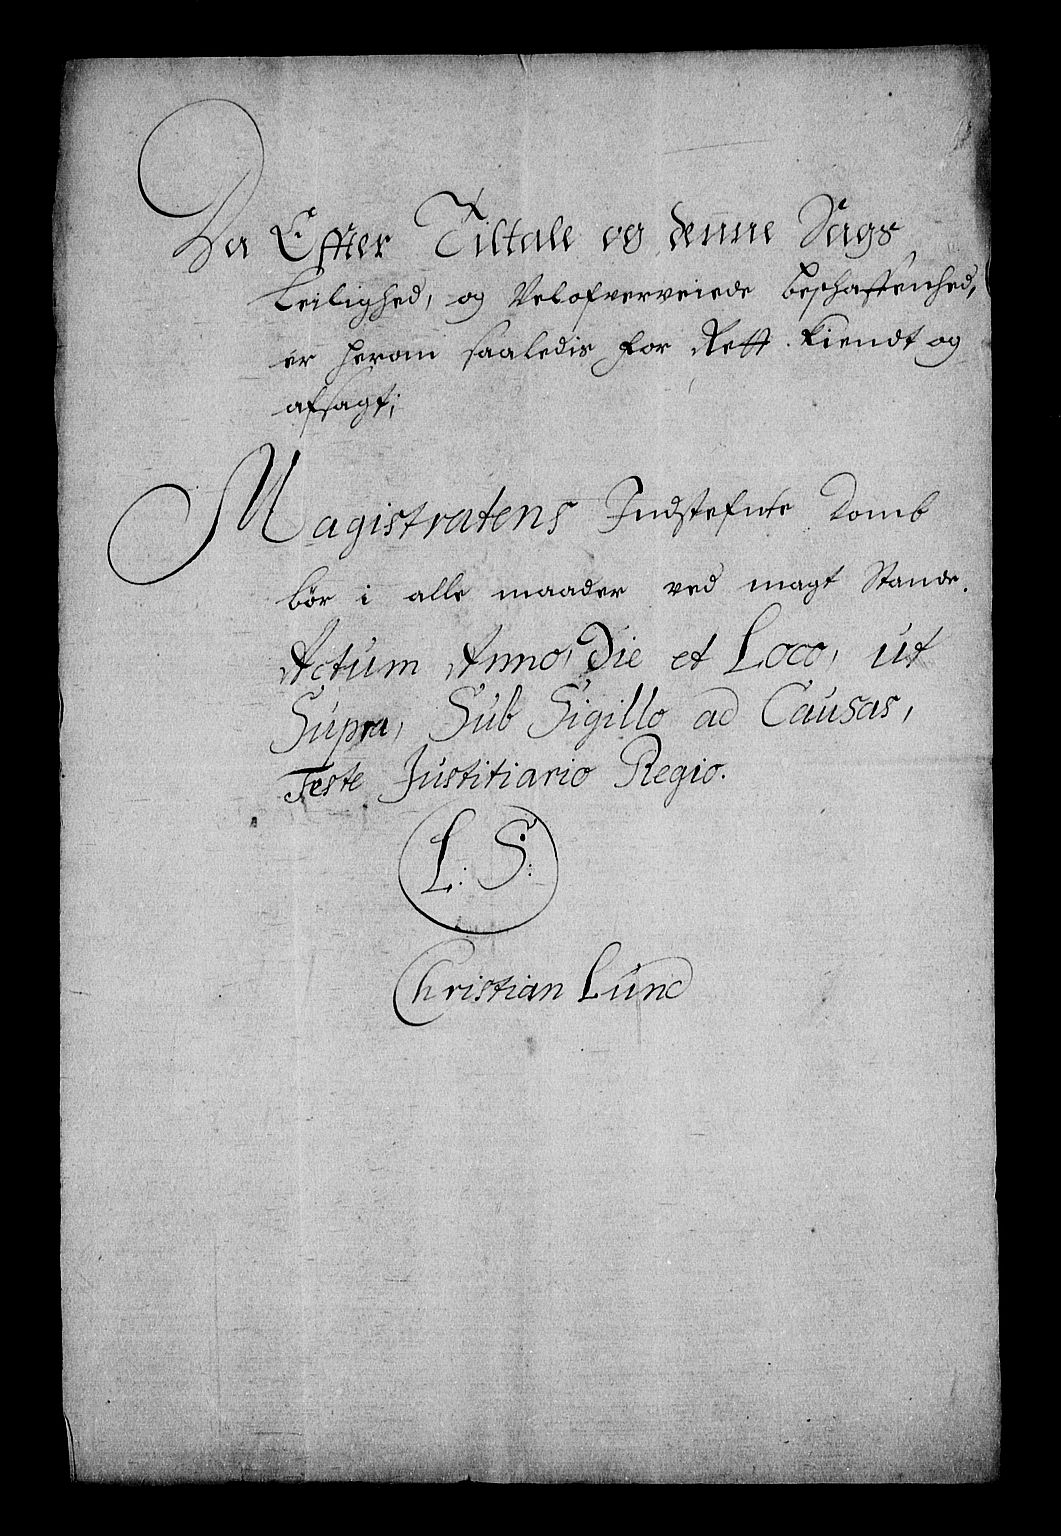 Da Effter Tiltale og denne Sags
Leilighed, og Velofverveiede beschaffenhed,
er herom saaledis for Rett kiendt og
afsagt;
Magistratens Indstefnte Domb
bør i alle maader ved magt Stande.
Actum Anno, Die et Loco, ut
Supra, Sub Sigillo ad Causas,
Teste Justitiario Regio.
L. S:
Christian Lund